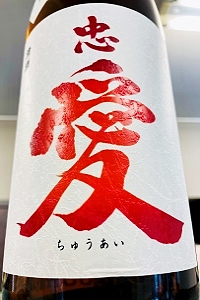 忠
愛
ちゅうあい